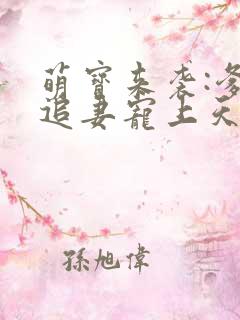 萌寶来袭:
追妻寵上天
孫旭偉